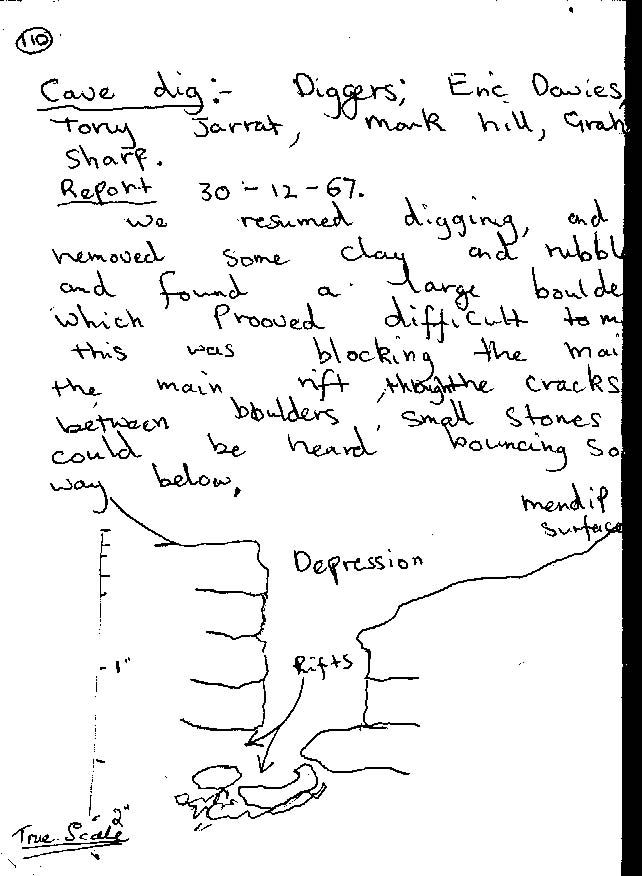 110
Cave dig:- Diggers; Eric Davies,
Tony Jarrat, Mark hill, Grah
Sharp.
Report 30-12-67.
We resumed digging, and
removed some clay and rubbl
and found a large boulde
which Prooved difficult to m
this was blocking the mai
the main rift, though the cracks
between boulders, small stones
could be heard bouncing so
way below.
mendip
surface
Depression
Rifts
1"
2"
True Scale